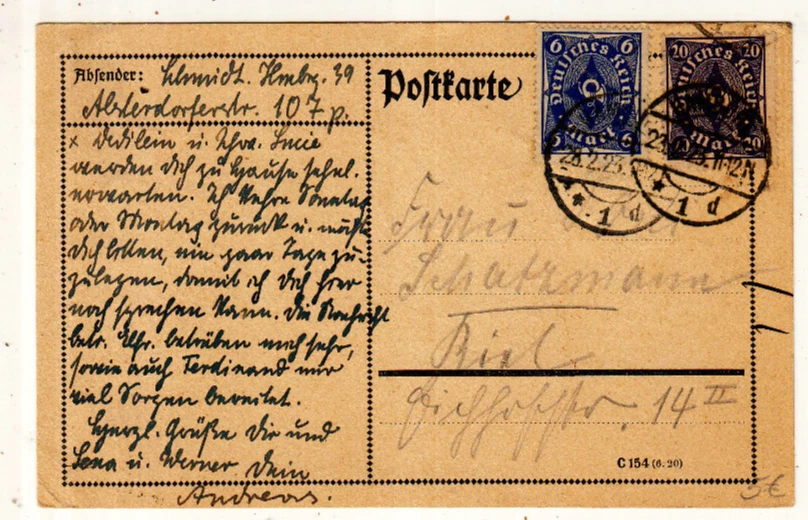 Absender: Schmidt. Hmbg. 39
Alsterdorferstr. 107 p.
x Dedilein u. Schw. Lucie
werden Dich zu Hause sehnl.
erwarten. Ich kehre Sonntag
oder Montag zurück u. möchte
Dich bitten, ein paar Tage zu-
zulegen, damit ich Dich hier
noch sprechen kann. Die Nachricht
betr. Uhr. betrüben mich sehr,
sowie auch Ferdinand nur
viel Sorgen bereitet.
Herzl. Grüße Dir und
Lena u. Werner Dein
Andreas.
Postkarte
6 6
Deutsches Reich
6
Mark
6 6
20 20
Deutsches Reich
Mark
20 20
28.2.23.
* 1 d
11-12 N
* 1 d
Frau
Schatzmann
Kiel
Eichhofstr. 14 II
C 154 (6.20)
5€